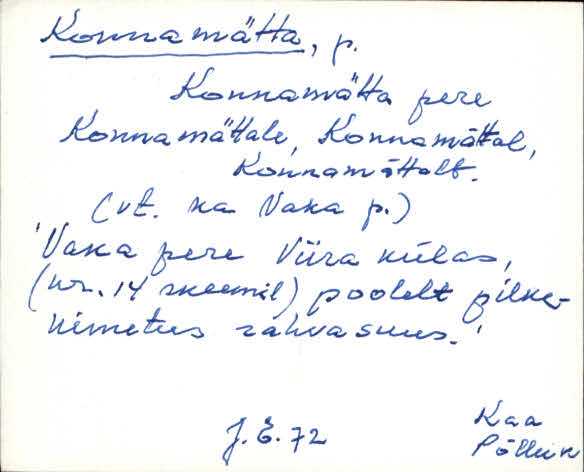 Konnamätta, p.
Konnamätta pere
Konnamättale, Konnamättal,
Konnamättalt.
(vt. ka Vaka p.)
'Vaka pere Viira külas,
(nr. 14 skeemil) poolelt pilke-
nimetus rahvasuus.'
J. E. 72
Kaa
Põlluk